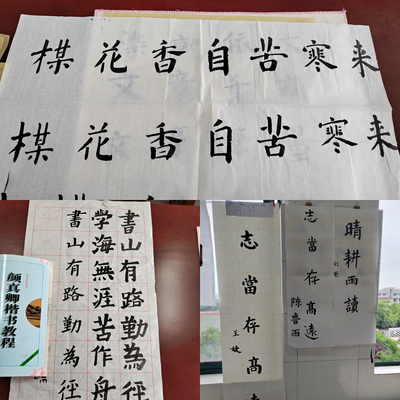 楳花香自苦寒来
楳花香自苦寒来
書山有路勤為徑
学海無涯苦作舟
書山有路勤為徑
颜真卿楷书教程
晴耕雨讀
志當存高遠
陈鲁西
志當存高